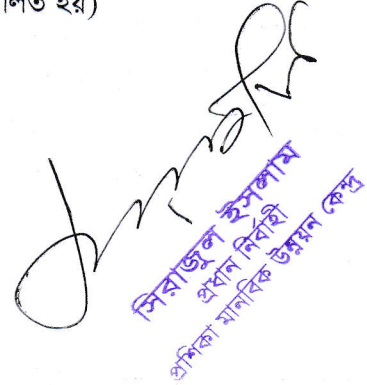 লিত হয়)
সিরাজুল ইসলাম
প্রধান নির্বাহী
প্রশিকা মানবিক উন্নয়ন কেন্দ্র